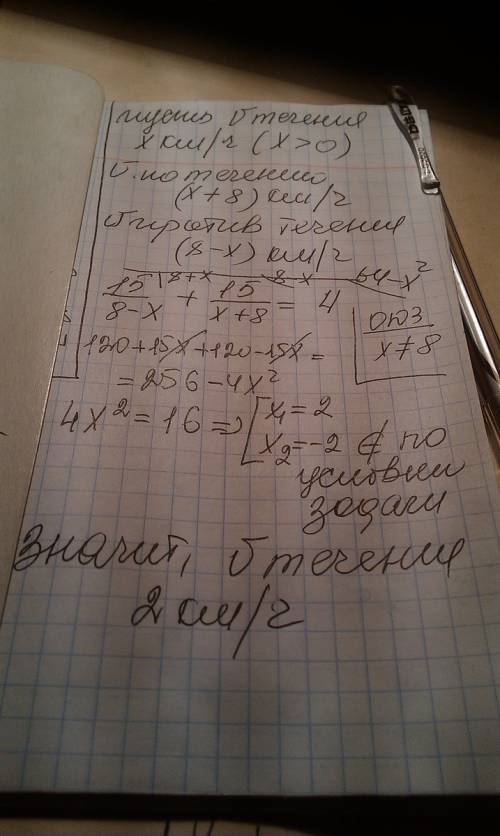 пусть v течения
x км/ч (x>0)
v по течению
(x+8) км/ч
v против течения
(8-x) км/ч
15/8-x + 15/x+8 = 4
8+x 8-x 64-x²
ОДЗ
x≠8
120+15x+120-15x=
=256-4x²
4x²=16=> [x₁=2
x₂=-2 ∉ по
условии
задачи
Значит, v течения
2 км/ч